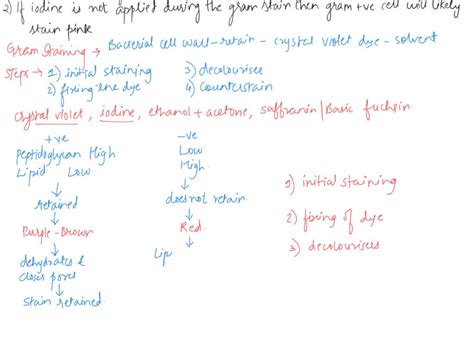 2) If iodine is not applied during the gram stain then gram +ve cell will likely
stain pink
Gram Staining → Bacterial cell wall - retain - crystal violet dye - solvent
Steps → 1) initial staining 3) decolourises
2) fixing the dye 4) counterstain
Crystal violet, iodine, ethanol + acetone, saffranin/Basic fuchsin
+ve -ve
Peptidoglycan High Low
Lipid Low High
retained does not retain
Purple-Brown Red
dehydrates & Lip
closes pores
Stain retained
1) initial staining
2) fixing of dye
3) decolourisers